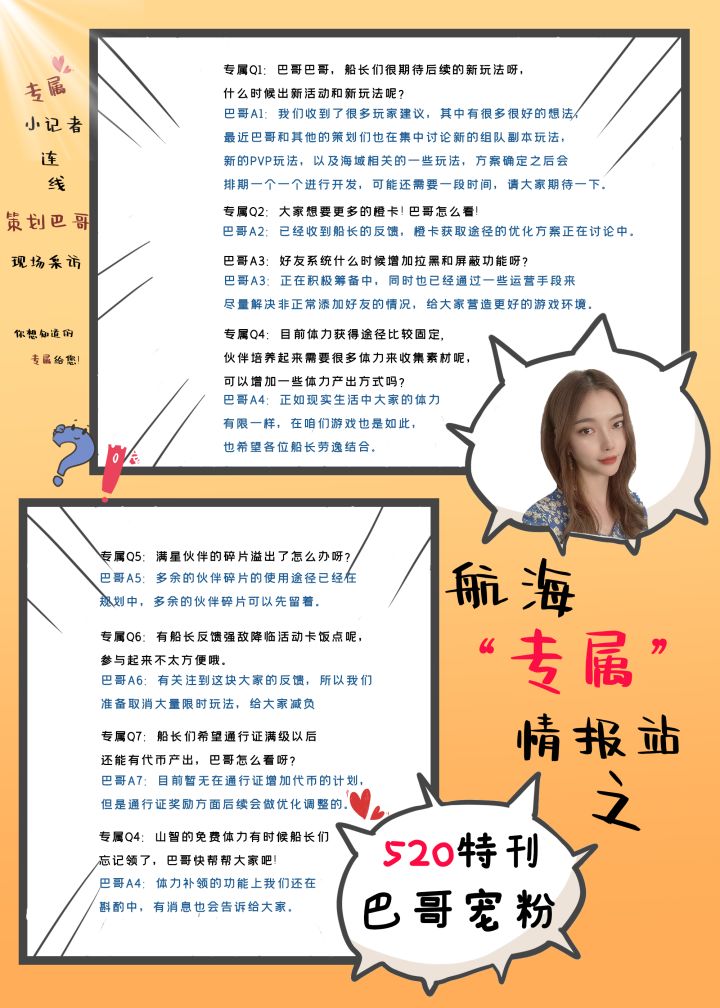 专属
小记者
连
线
策划巴哥
现场采访
你想知道的
专属给您!
专属Q1：巴哥巴哥，船长们很期待后续的新玩法呀，
什么时候出新活动和新玩法呢？
巴哥A1：我们收到了很多玩家建议，其中有很多很好的想法，
最近巴哥和其他的策划们也在集中讨论新的组队副本玩法，
新的PVP玩法，以及海域相关的一些玩法，方案确定之后会
排期一个一个进行开发，可能还需要一段时间，请大家期待一下。
专属Q2：大家想要更多的橙卡！巴哥怎么看！
巴哥A2：已经收到船长的反馈，橙卡获取途径的优化方案正在讨论中。
专属Q3：好友系统什么时候增加拉黑和屏蔽功能呀？
巴哥A3：正在积极筹备中，同时也已经通过一些运营手段来
尽量解决非正常添加好友的情况，给大家营造更好的游戏环境。
专属Q4：目前体力获得途径比较固定，
伙伴培养起来需要很多体力来收集素材呢，
可以增加一些体力产出方式吗？
巴哥A4：正如现实生活中大家的体力
有限一样，在咱们游戏也是如此，
也希望各位船长劳逸结合。
专属Q5：满星伙伴的碎片溢出了怎么办呀？
巴哥A5：多余的伙伴碎片的使用途径已经在
规划中，多余的伙伴碎片可以先留着。
专属Q6：有船长反馈强敌降临活动卡饭点呢，
参与起来不太方便哦。
巴哥A6：有关注到这块大家的反馈，所以我们
准备取消大量限时玩法，给大家减负
专属Q7：船长们希望通行证满级以后
还能有代币产出，巴哥怎么看呀？
巴哥A7：目前暂无在通行证增加代币的计划，
但是通行证奖励方面后续会做优化调整的。
专属Q4：山智的免费体力有时候船长们
忘记领了，巴哥快帮帮大家吧！
巴哥A4：体力补领的功能上我们还在
斟酌中，有消息也会告诉给大家。
航海
“专属”
情报站
之
520特刊
巴哥宠粉